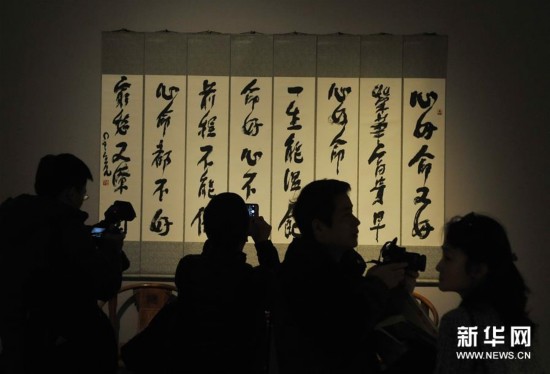 心好命又好
榮華早
心好命
一生能溫飽
命好心不
前程不能保
心命都不好
窮愁又潦
新华网
WWW.NEWS.CN